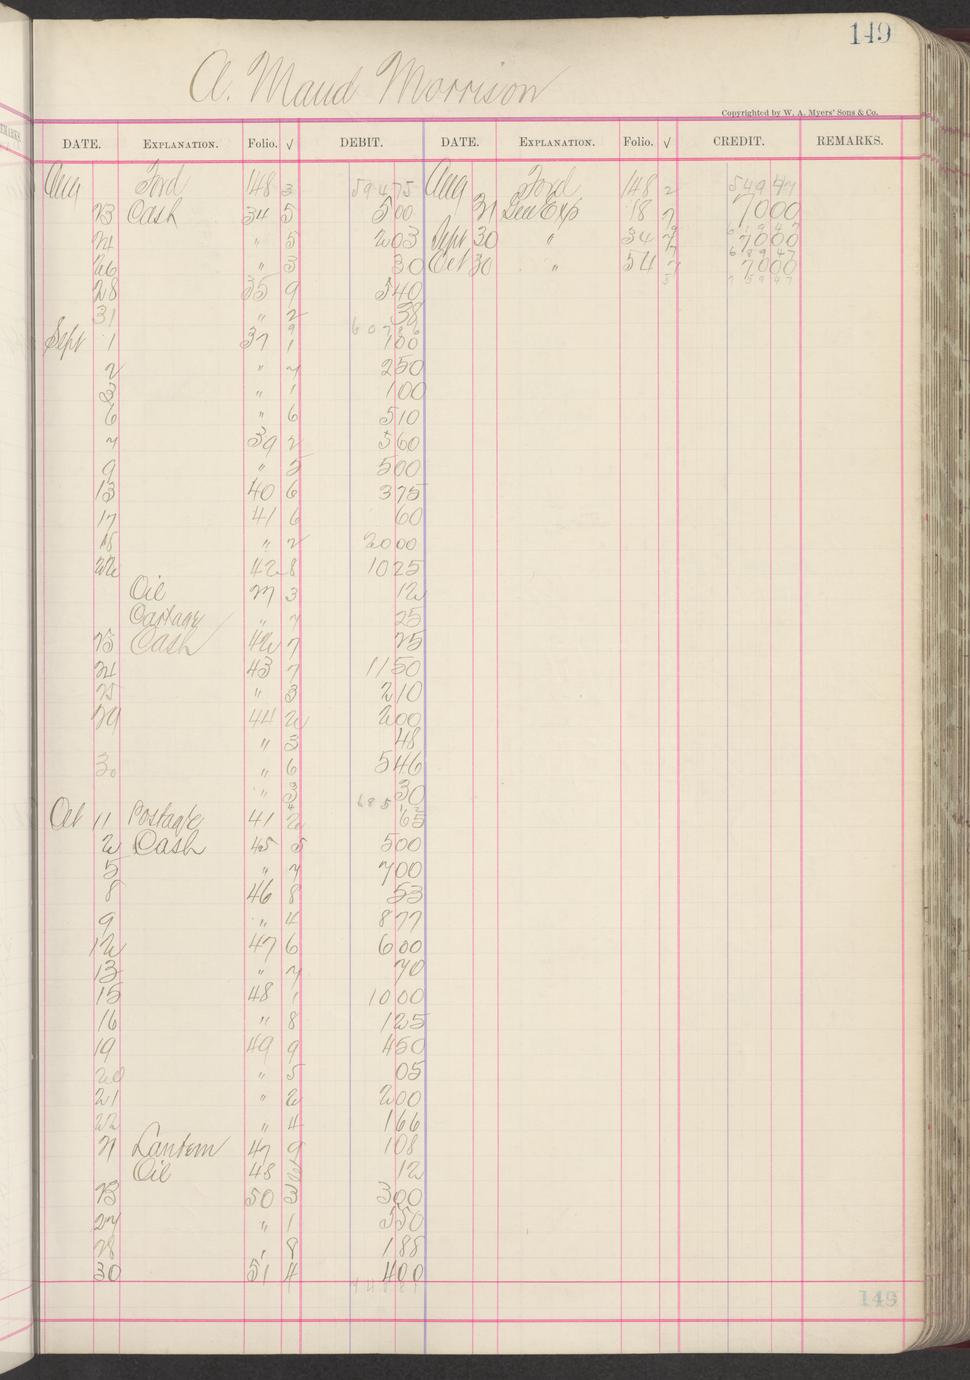 149
A. Maud Morrison
Copyrighted by W. A. Myers' Sons & Co.
DATE. EXPLANATION. Folio. √ DEBIT. DATE. EXPLANATION. Folio. √ CREDIT. REMARKS.
Aug Ford 148 3 594 75 Aug Ford 148 2 549 47
23 Cash 34 5 5 00 31 Gen Exp 18 7 70 00
24 " 5 2 03 Sept 30 " 34 7 70 00
26 " 3 30 Oct 30 " 54 7 70 00
28 35 9 5 40
31 " 2 38
Sept 1 37 1 1 00
2 " 7 2 50
3 " 1 1 00
6 " 6 5 10
7 39 2 5 60
9 " 5 5 00
13 40 6 3 75
17 41 6 60
18 " 2 20 00
22 42 8 10 25
Oil 27 3 12
Cartage " 7 25
23 Cash 42 7 25
24 43 7 11 50
25 " 3 2 10
29 44 2 2 00
" 3 48
30 " 6 5 46
" 3 30
Oct 11 Postage 41 2 65
2 Cash 45 5 5 00
5 " 7 7 00
8 46 8 53
9 " 4 8 77
12 47 6 6 00
13 " 7 70
15 48 1 10 00
16 " 8 1 25
19 49 9 4 50
20 " 5 05
21 " 2 2 00
22 " 4 1 66
21 Lantern 47 9 1 08
Oil 48 12
23 50 3 3 00
27 " 1 5 50
28 " 8 1 88
30 51 4 4 00
149